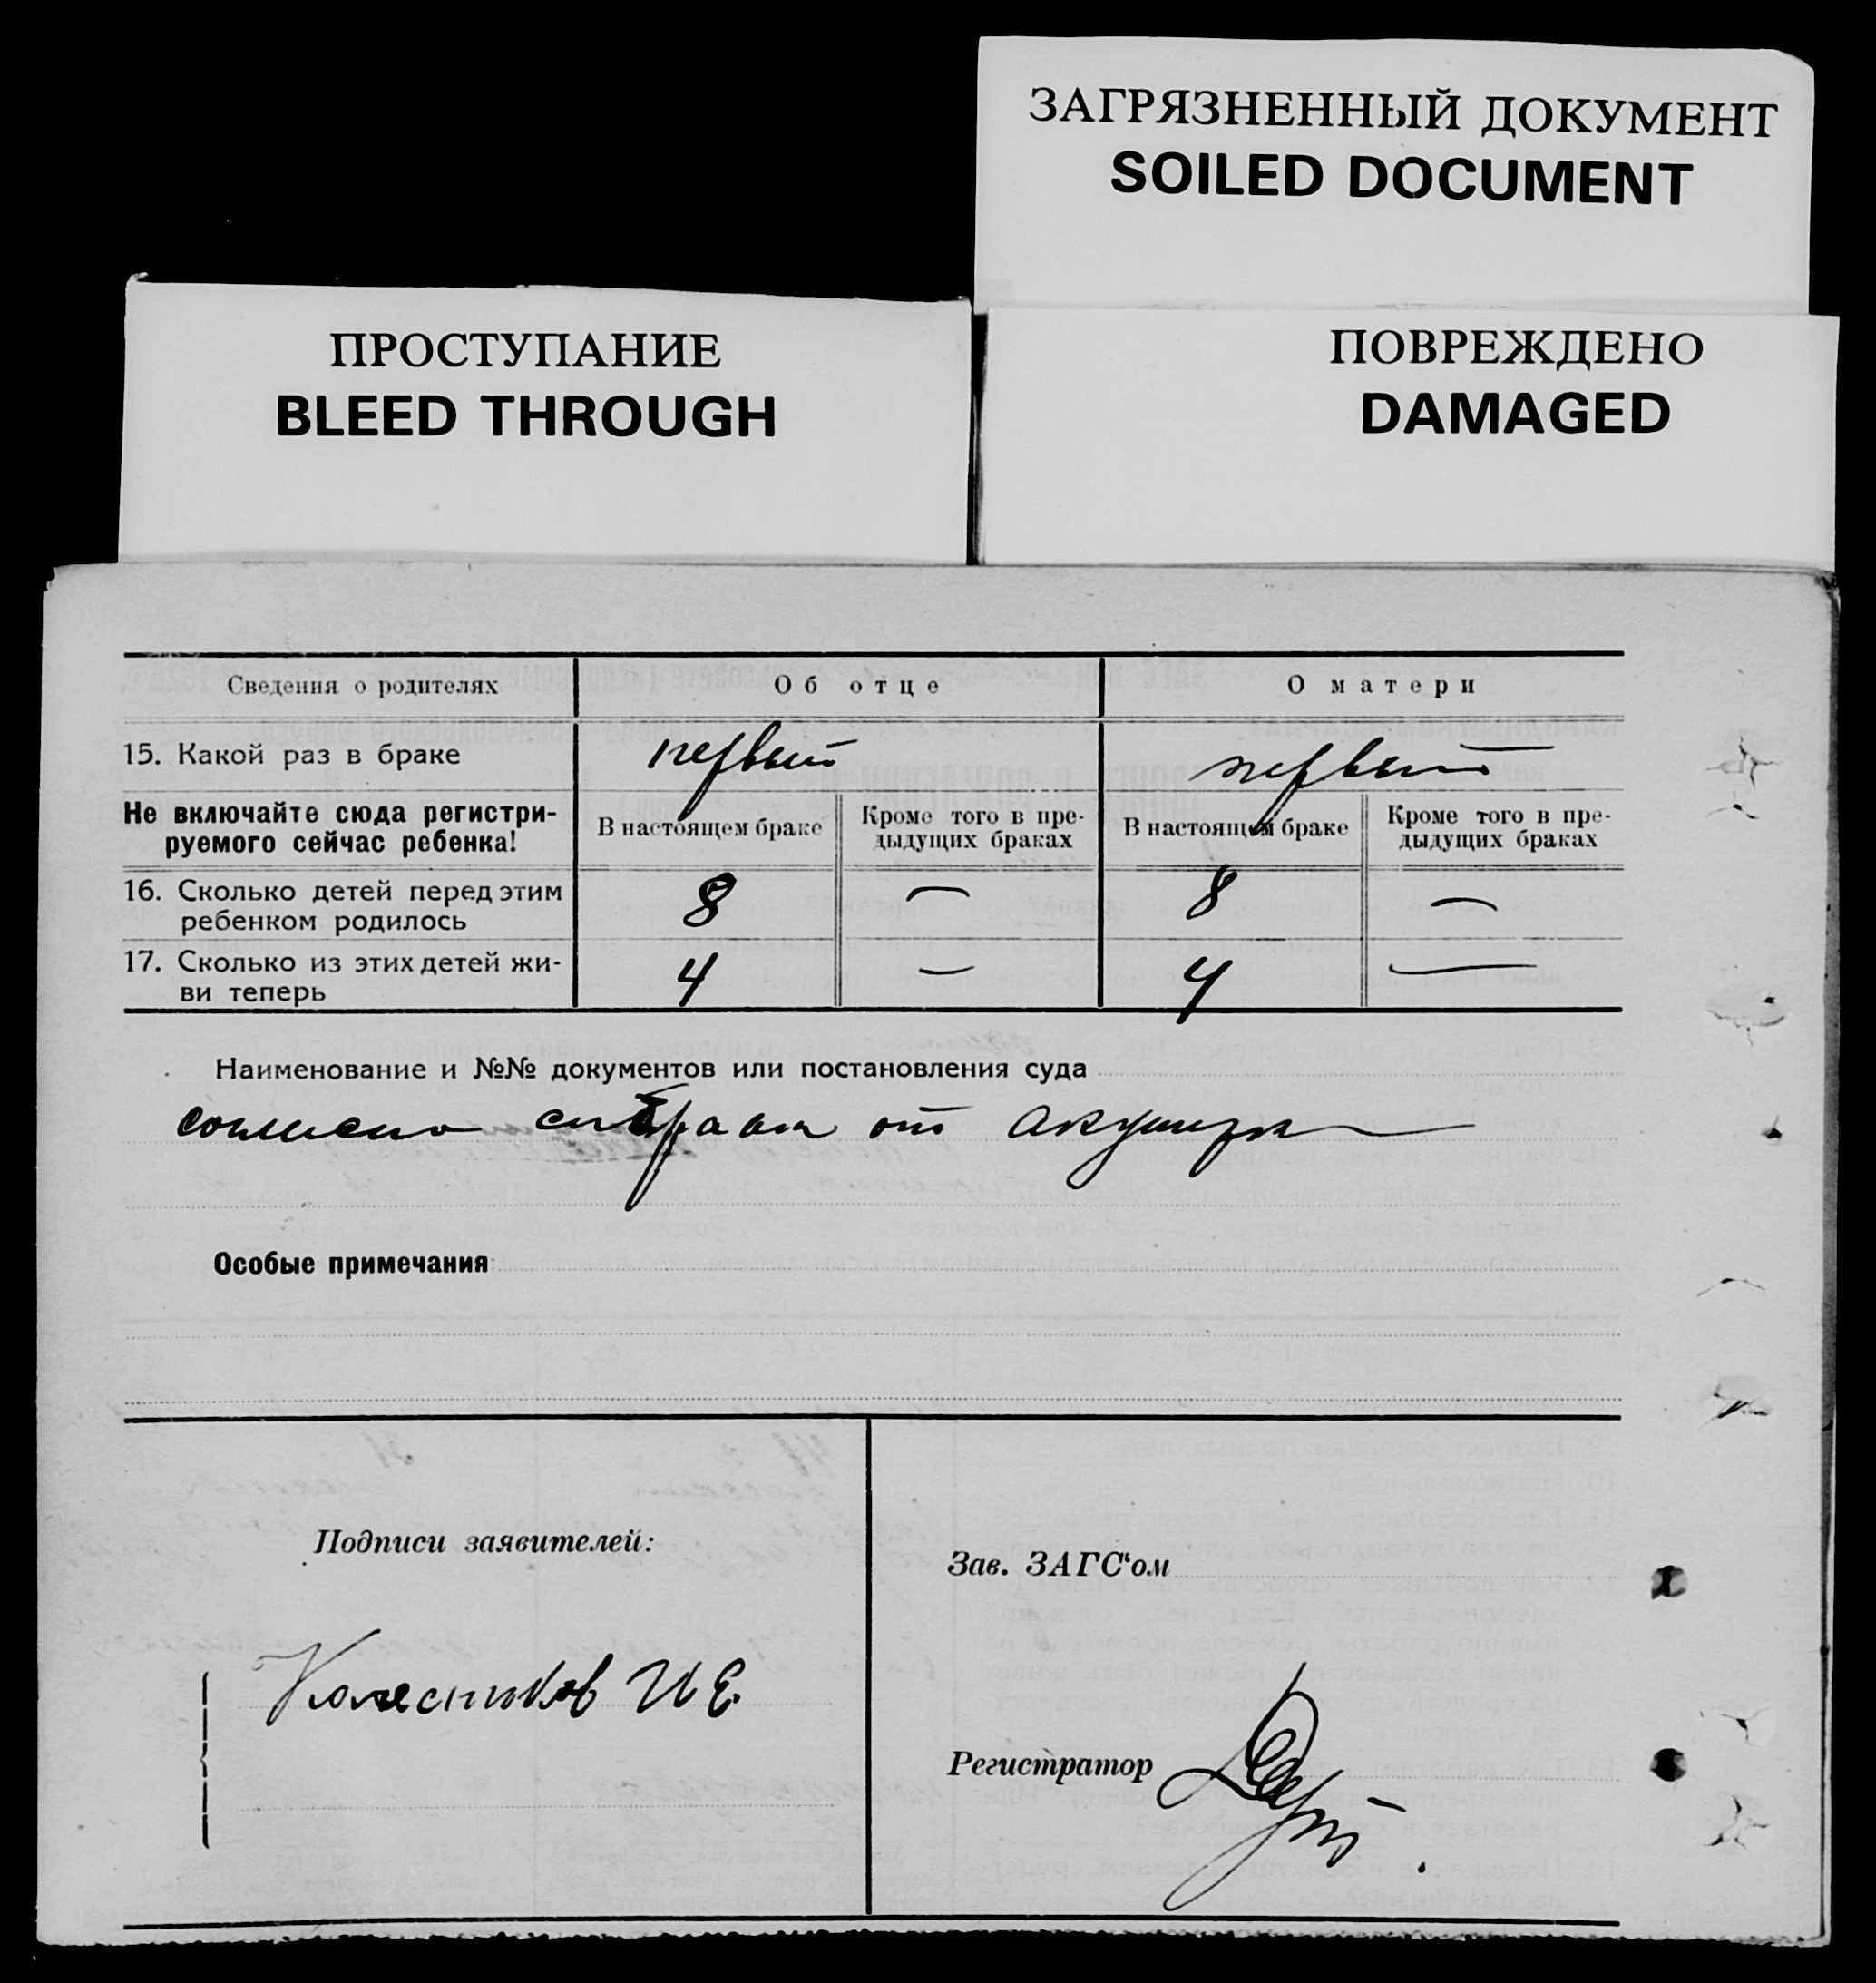 ЗАГРЯЗНЕННЫЙ ДОКУМЕНТ
SOILED DOCUMENT
ПРОСТУПАНИЕ
BLEED THROUGH
ПОВРЕЖДЕНО
DAMAGED
Сведения о родителях Об отце О матери
15. Какой раз в браке первый первый
Не включайте сюда регистри-
руемого сейчас ребенка!
В настоящем браке
Кроме того в пре-
дыдущих браках
В настоящем браке
Кроме того в пре-
дыдущих браках
16. Сколько детей перед этим
ребенком родилось 8 — 8 —
17. Сколько из этих детей жи-
ви теперь 4 — 4 —
Наименование и №№ документов или постановления суда
согласно справки от акушерки
Особые примечания
Подписи заявителей:
Зав. ЗАГС‘ом
Колесников И Е
Регистратор